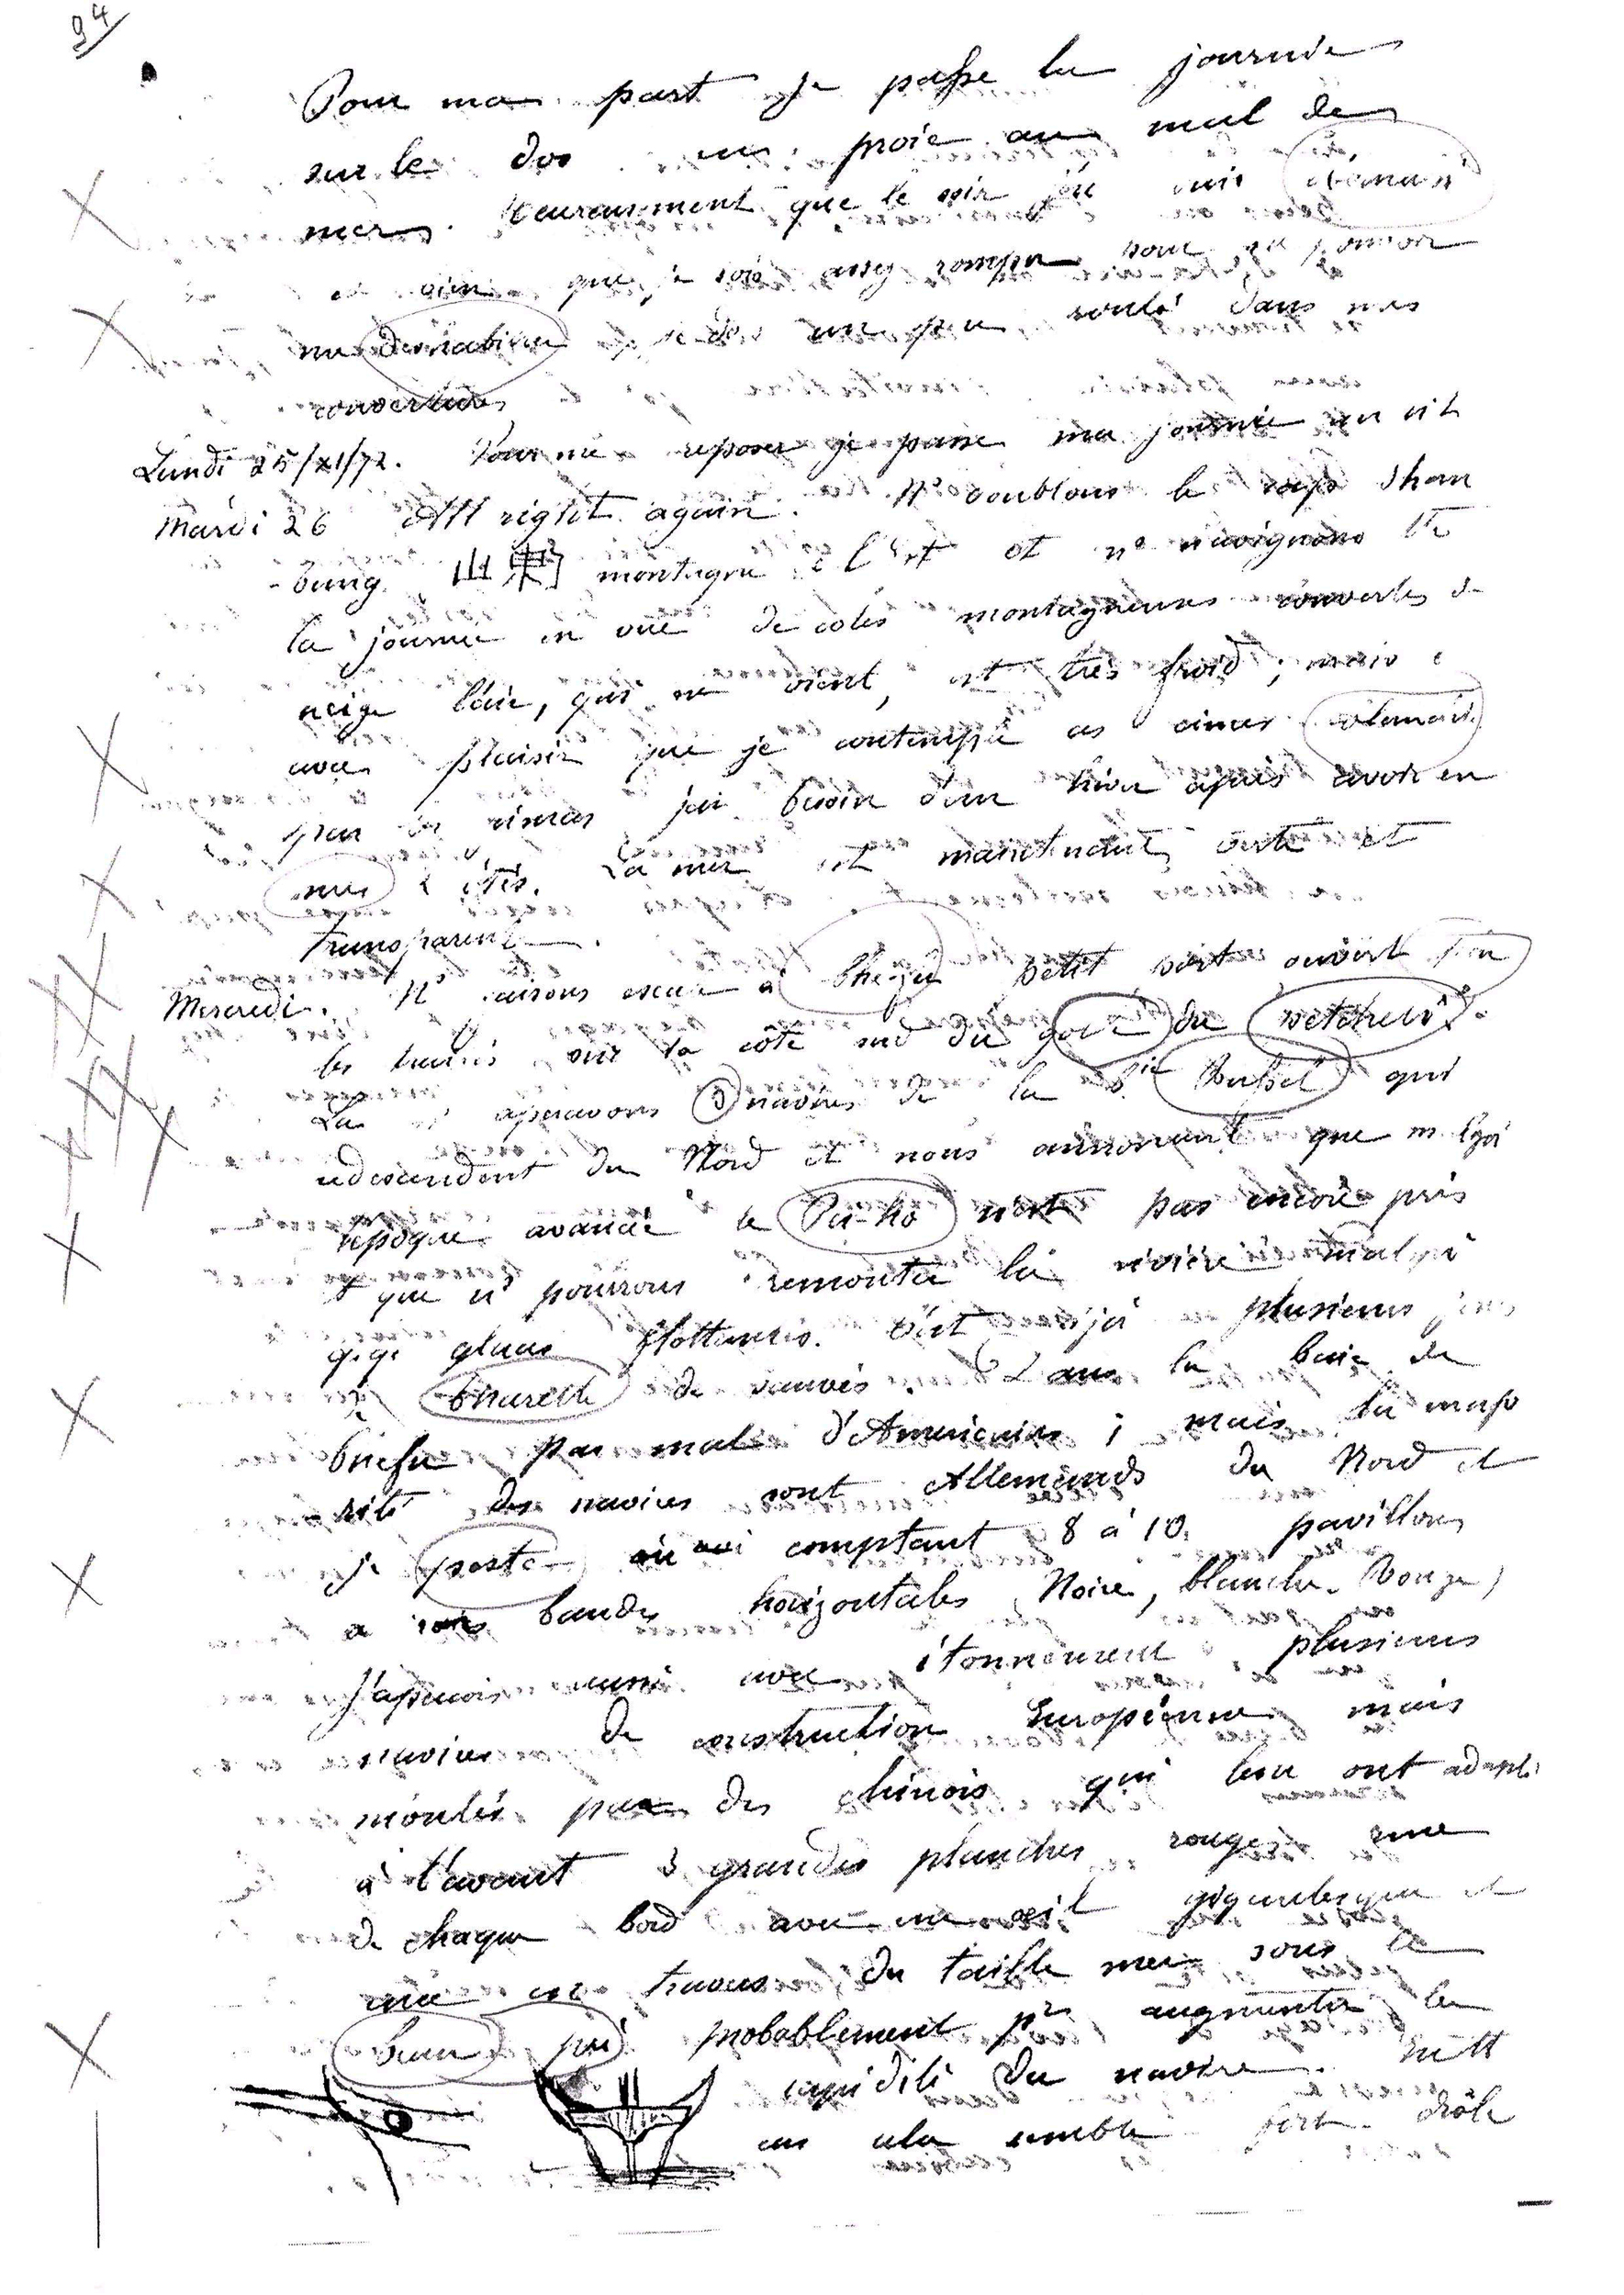 94
Pour ma part je passe la journée
sur le dos en proie au mal de
mer. Heureusement que le soir j'en suis
bien que je sois assez rompu pour pouvoir
me un peu roulé dans mes
couvertures
Lundi 25/XI/72. Pour me reposer je passe ma journée au lit
Mardi 26 All right again. Ns doublons le cap Shan
-tung 山東 montagne de l'Est et ns navigons tte
la journée en vue de côtes montagneuses couvertes de
neige l'air, qui me vient, est très froid ; mais c
avec plaisir que je contemple ces cimes
par les rimas j'ai besoin d'un hiver après avoir eu
2 étés. La mer est maintenant verte et
transparente.
Mercredi. Ns faisons escale à Che-fu petit port ouvert
les traités sur la côte sud du golfe du Petcheli.
La ns apercevons 3 navires de la Cie Russel qui
redescendent du Nord et nous annoncent que malgré
l'époque avancée le Pei-ho n'est pas encore pris
et que ns pourrons remonter la rivière malgré
qqs glaces flottantes. C'est déjà plusieurs
de de sauvés. Dans la baie de
Chefu pas mal d'Américains ; mais la majo
-rité des navires sont Allemands du Nord et
je en comptant 8 à 10 pavillons
a trois bandes horizontales Noire, blanche, Rouge,
J'aperçois aussi avec étonnement plusieurs
navires de construction Européenne mais
montés par des chinois qui leur ont adapté
à l'avant 3 grandes planches rouges une
de chaque bord avec un œil gigantesque et
une en travers du taille mer sous le
beau pré probablement pr augmenter la
rapidité du navire. Tutt
cas cela semble fort drôle